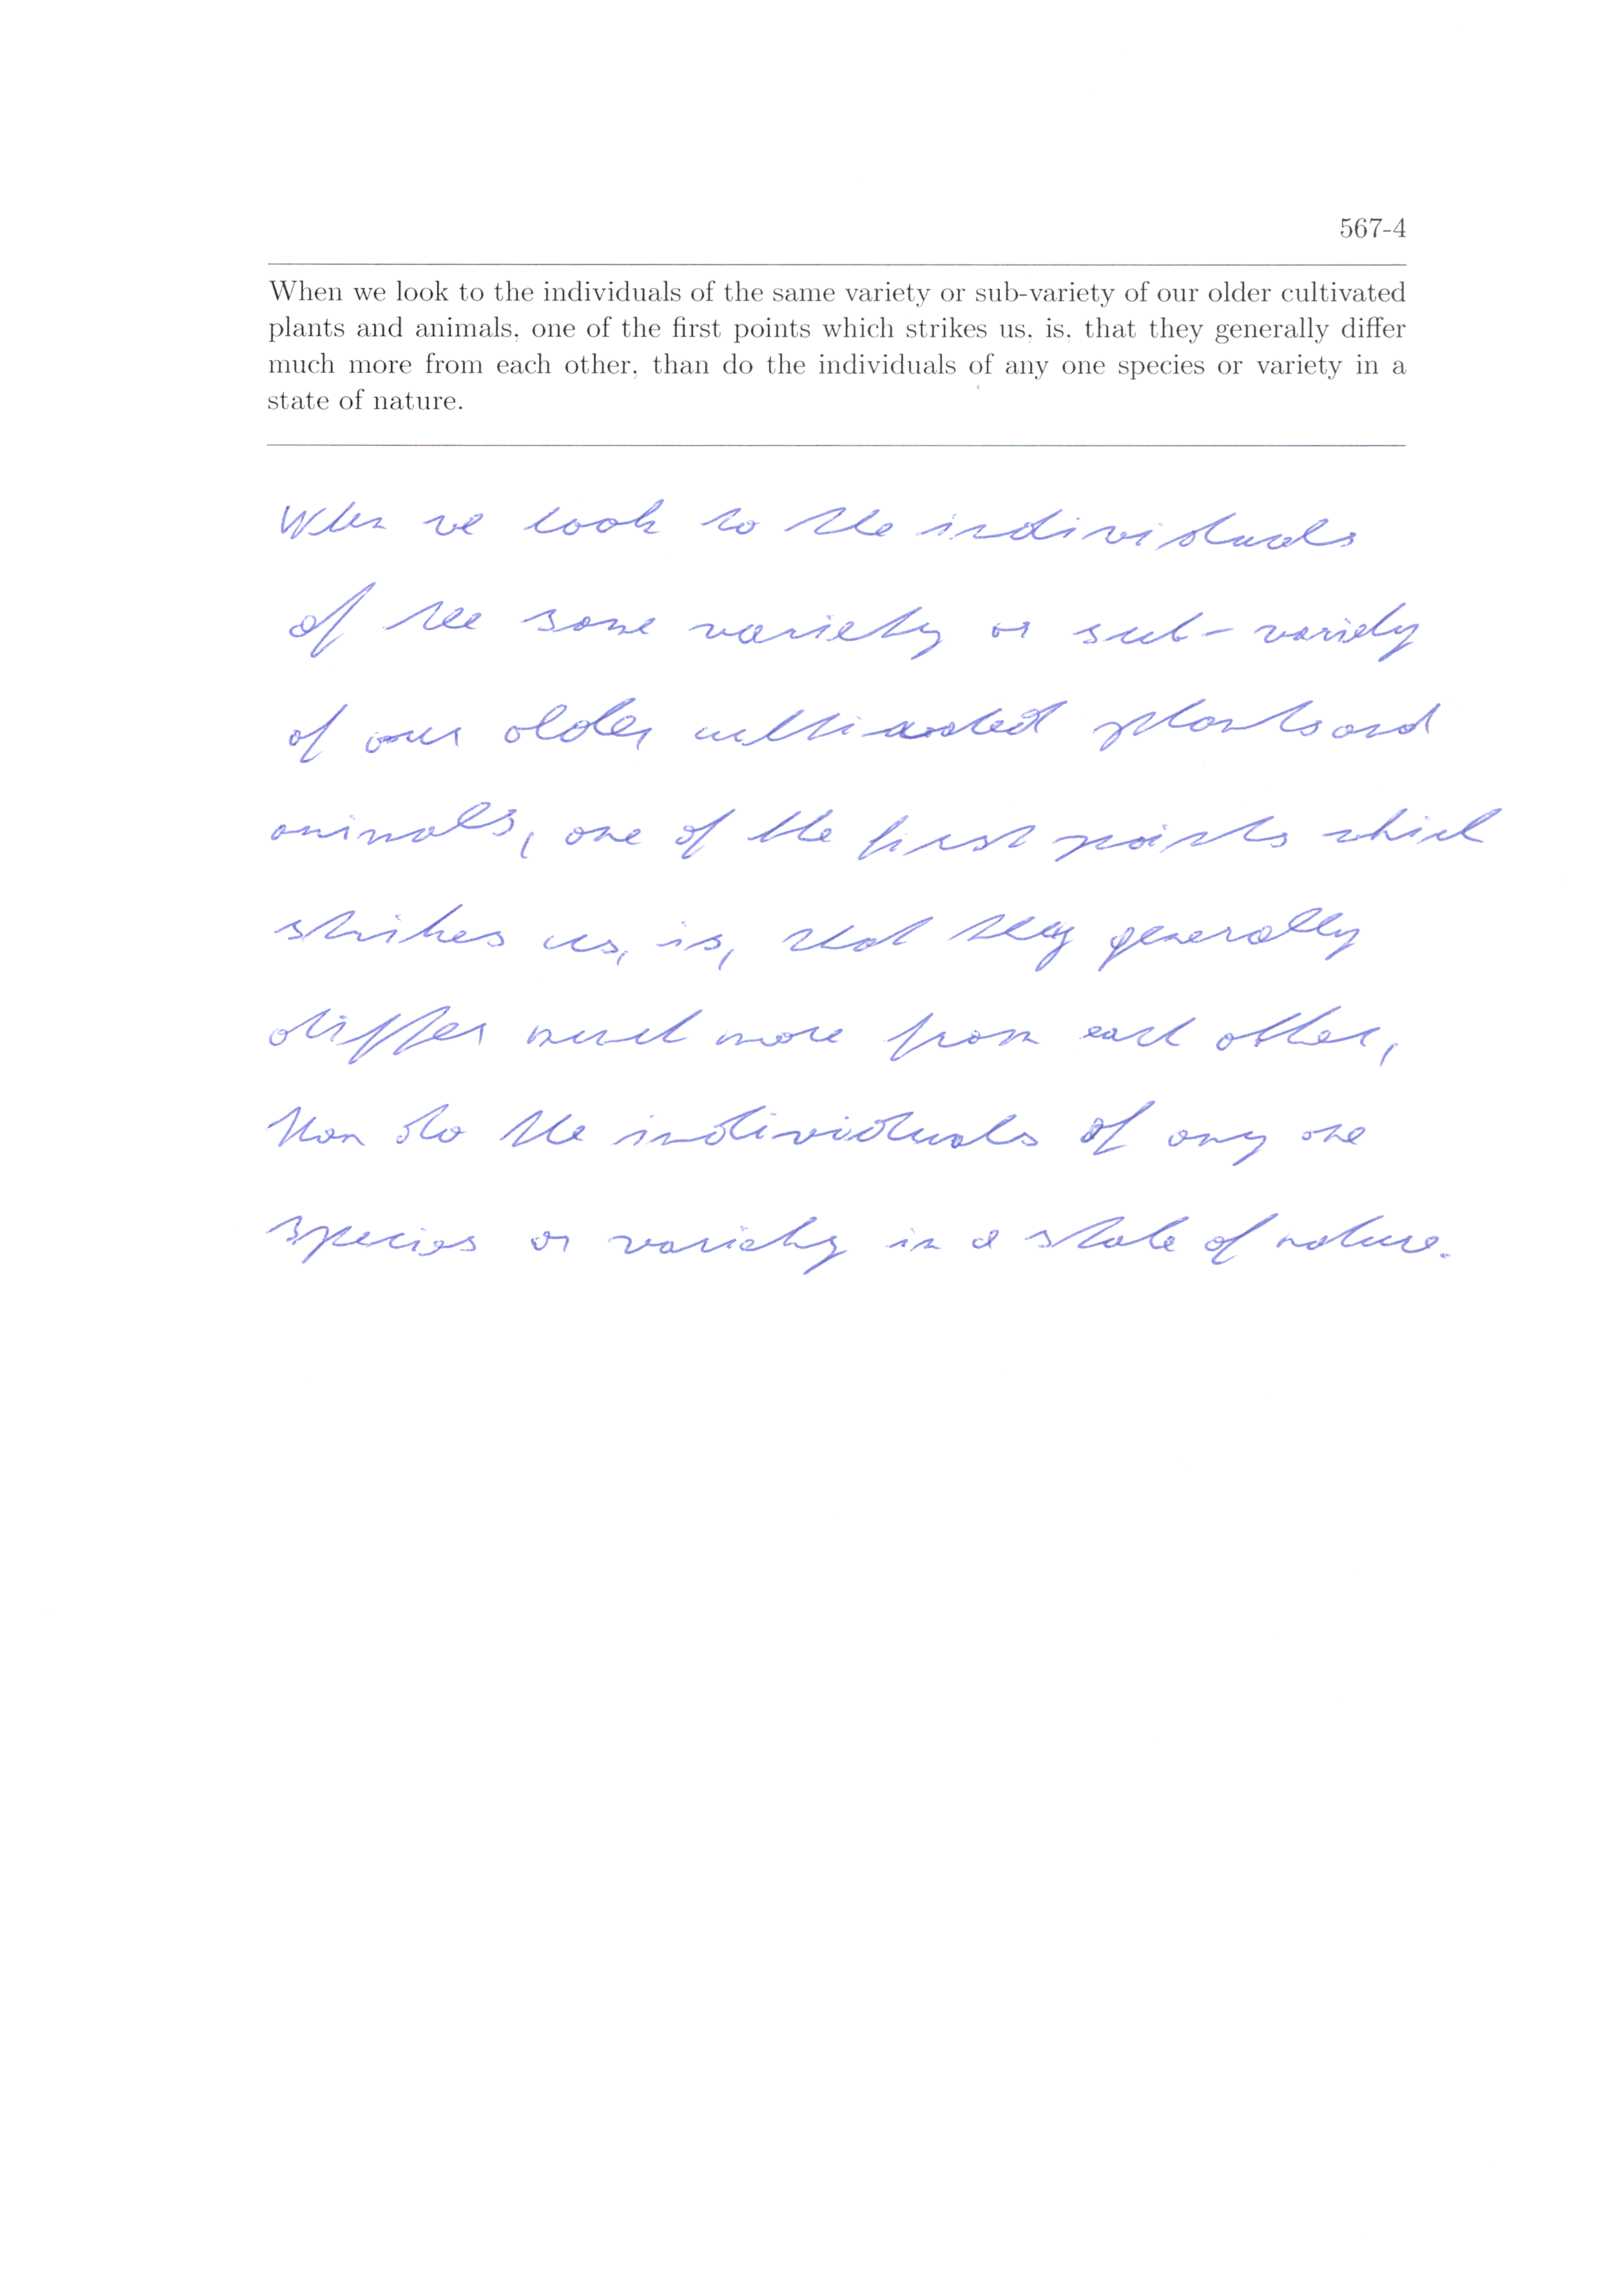 567-4
When we look to the individuals of the same variety or sub-variety of our older cultivated
plants and animals, one of the first points which strikes us, is, that they generally differ
much more from each other, than do the individuals of any one species or variety in a
state of nature.
When we look to the individuals
of the same variety or sub-variety
of our older cultivated plants and
animals, one of the first points which
strikes us, is, that they generally
differ much more from each other,
than do the individuals of any one
species or variety in a state of nature.